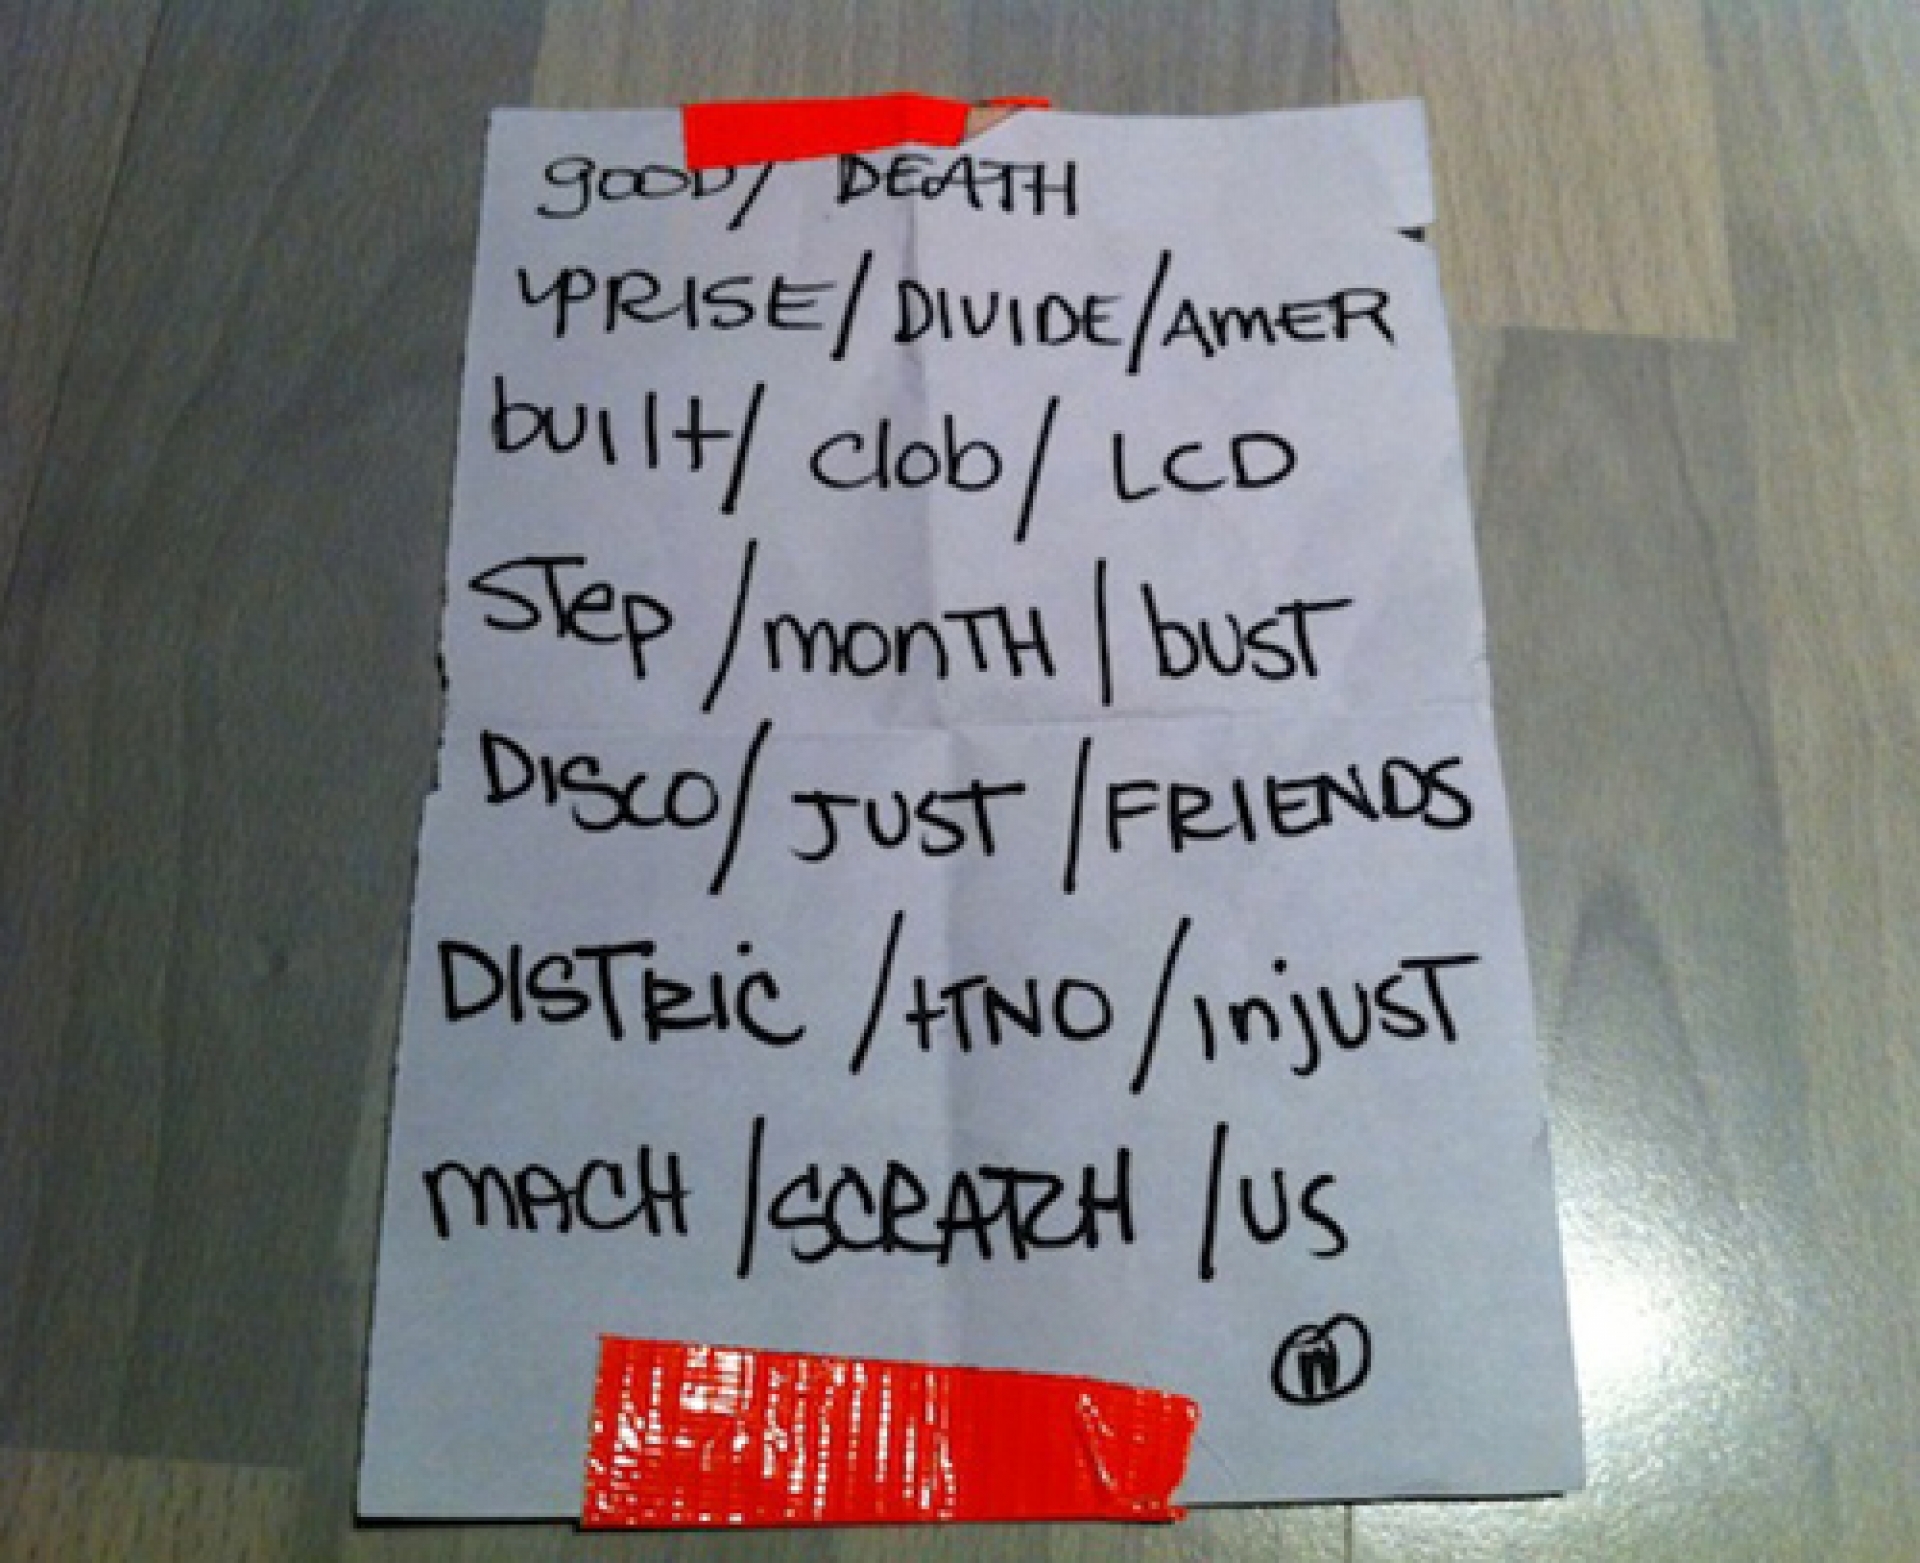 good/ DEATH
UPRISE/ DIVIDE/AMER
built/ clob/ LCD
STep /monTH / busT
DISCO/ JUST /FRIENDS
DISTRiC /tTNO/injusT
mACH /SCRATCH /US